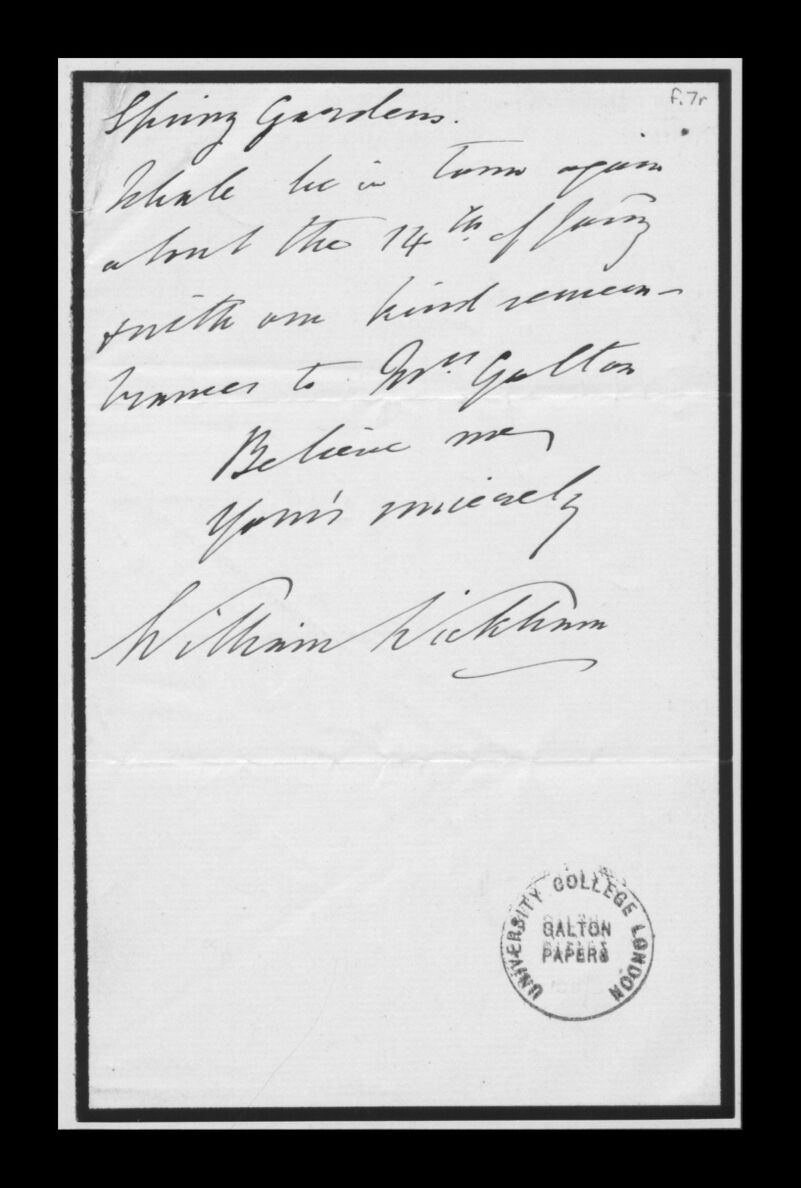 f.7r
Spring Gardens.
shall be in town again
about the 14th of Jany
& with our kind remem-
brances to Mrs Galton
Believe me
Yours sincerely
William Wickham
UNIVERSITY COLLEGE LONDON
GALTON
PAPERS